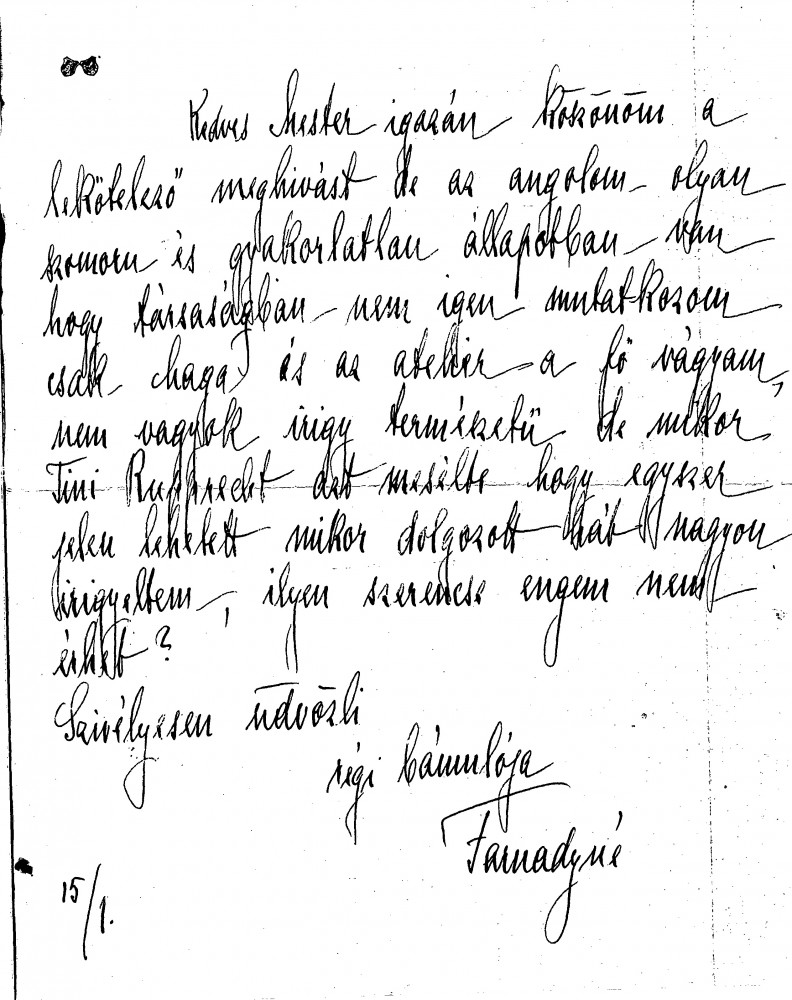 Kedves Mester igazán köszönöm a
lekötelező meghivást de az angolom olyan
szomoru és gyakorlatlan állapotban van
hogy társaságban nem igen mutatkozom
csak maga és az atelier a fő vágyam,
nem vagyok irigy természetű de mikor
Tini Rupprecht azt mesélte hogy egyszer
jelen lehetett mikor dolgozott hát nagyon
irigyeltem, ilyen szerencse engem nem
érhet?
Szivélyesen üdvözli
régi bámulója
Farnadyné
15/1.